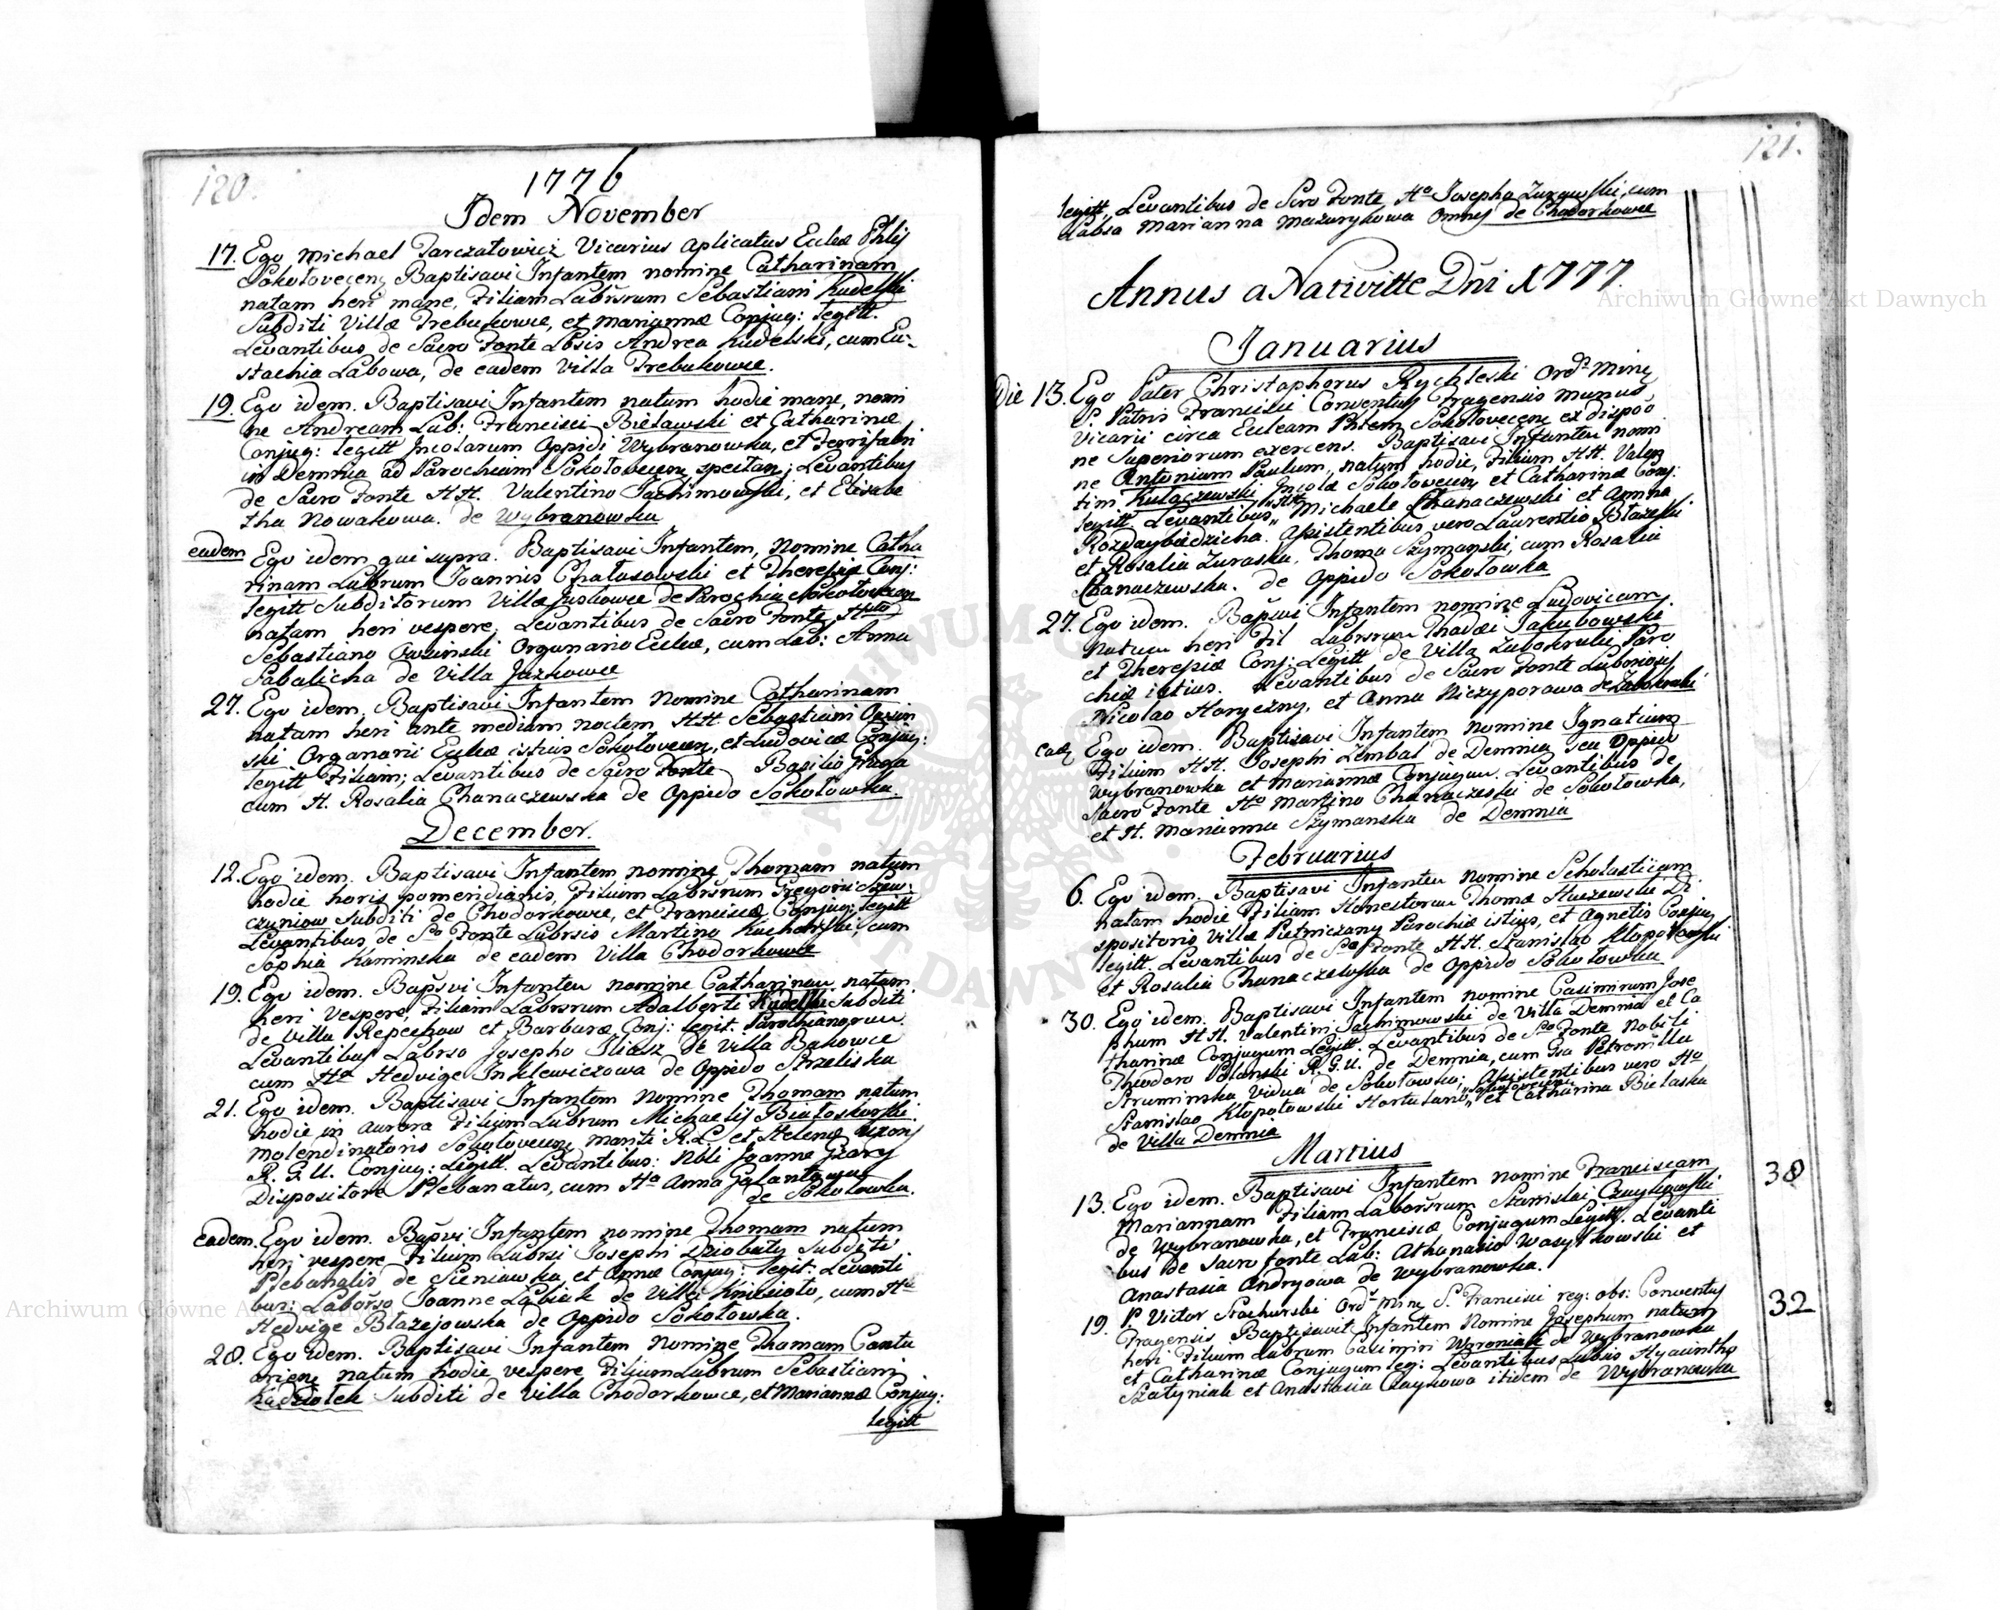 120.
1776
Idem November
17. Ego Michael Parczatowicz Vicarius Aplicatus Eccłæ Phlis
Sokołovecens Baptisavi Infantem nomine Catharinam
natam heri mane, Filiam Labrsrum Sebastiani Kudelski
Subditi Villæ Trebukowce, et Mariannæ Conjug: legitt.
Levantibus de Sacro Fonte Lbsis Andrea Kudelski, cum Eu-
stachia Labowa, de eadem Villa Trebukowce.
19. Ego idem. Baptisavi Infantem natum hodie mane, nomi
ne Andream Lab: Francisci Bielawski et Catharinæ
Conjug: legitt Incolarum Oppidi Wybranowka, et
in Demnia ad Parochiam Sokołovecens spectan; Levantibus
de Sacro Fonte HH. Valentino Jachimowski, et Elisabe
tha Nowakowa. de Wybranowka
eadem Ego idem qui supra. Baptisavi Infantem, Nomine Catha
rinam Labrum Joannis Chałasowski et Theresiæ Conj:
legitt Subditorum Villæ Juszkowce de Parochia Sokołowecen
natam heri vespere, Levantibus de Sacro Fonte Hsto
Sebastiano Organario Eccłæ, cum Lab: Anna
Sabalicha de Villa Juszkowce
27. Ego idem. Baptisavi Infantem Nomine Catharinam
natam heri ante mediam noctem, HH. Sebastiani
ski Organarii Eccłæ istius Sokołovecen, et Ludovicæ Conjug:
legitt Filiam; Levantibus de Sacro Fonte Basilio
cum H. Rosalia Chanaczewska de Oppido Sokołowka.
December.
12. Ego idem. Baptisavi Infantem nomine Thomam natum
hodie horis pomeridianis, Filium Labrsrum Gregorii Szew-
czyniow Subditi de Chodorkowce, et Franciscæ Conjug: legitt
Levantibus de S°° Fonte Labrsis Martino Kucharski, cum
Sophia Kaminska de eadem Villa Chodorkowce
19. Ego idem. Bapsvi Infantem nomine Catharinam natam
heri vespere, Filiam Labrsrum Adalberti Kudella Subditi
de Villa Repechow et Barbaræ Conj: legit. Parochianorum.
Levantibus Labrso Josepho Iliasz de Villa Bakowce
cum Ha Hedvige de Oppido Strzeliska
21. Ego idem. Baptisavi Infantem Nomine Thomam natum
hodie in aurora Filium Labrum Michaelis Białoskorski
Molendinatoris Sokołovecens mariti R.L. et Helenæ uxoris
R.G.U. Conjug: Legitt. Levantibus: Nbli Joanne Gzary
Dispositore Plebanatus, cum Ha Anna Galantowa
de Sokołowka.
eadem. Ego idem. Bapvi Infantem nomine Thomam natum
heri vespere, Filium Labrsi Josephi Dziobaty Subditi
Plebanalis de Sieniawka, et Annæ Conjug: legit: Levanti
bus: Laborso Joanne Labiak de Villa Kniesioło, cum Ha
Hedvige Błazejowska de Oppido Sokołowka.
28. Ego idem. Baptisavi Infantem Nomine Thomam Cantu
ariens natum hodie vespere, Filium Labrum Sebastiani
Kądziołek Subditi de Villa Chodorkowce, et Mariannæ Conjug:
legitt
121.
legitt. Levantibus de Scro Fonte Ho Josepho Zurawski, cum
Labsa Marianna Mazurykowa Omnes de Chodorkowce
Annus a Nativitte Dñi 1777.
Januarius
Die 13. Ego Pater Christophorus Rychleski Ordis Minc
S. Patris Francisci Conventus Pragensis munus
Vicarii circa Eccleam Phlem Sokołovecens ex dispoo
ne Superiorum exercens. Baptisavi Infantem nomi
ne Antonium Paulum, natum hodie, Filium HH. Valen
tini Kułaczewski Incolæ Sokołovecens et Catharinæ Conj:
legitt. Levantibus HH Michaele Chanaczewski et Anna
Rozdaybiedzicha. Assistentibus vero Laurentio Błazeski
et Rosalia Zuraska. Thoma Szymanski, cum Rosalia
Chanaczewska. de Oppido Sokołowka
27. Ego idem. Bapsvi Infantem nomine Ludovicam
Natam heri Fil Labrsrum Thadæi Jakubowski
et Theresiæ Conj: Legitt de Villa Zabokruki Paro
chiæ istius. Levantibus de Sacro Fonte Laboriosis
Nicolao Horyczny, et Anna Niczyporowa de Zabokruki
ead Ego idem. Baptisavi Infantem Nomine Ignatium
Filium HH. Josephi Zembal de Demnia seu Oppido
Wybranowka et Mariannæ Conjugum. Levantibus de
Sacro Fonte Ho Martino Chanaczeski de Sokołowka,
et H. Marianna Szymanska de Demnia
Februarius
6. Ego idem. Baptisavi Infantem Nomine Scholasticam
natam hodie Filiam Honestorum Thomæ Huszewski Di
spositoris Villæ Pietniczany Parochiæ istius, et Agnetis Conjug
legitt. Levantibus de S°° Fonte HH. Stanislao Kłopotowski
et Rosalia Chanaczewska de Oppido Sokołowka
30. Ego idem. Baptisavi Infantem nomine Casimirum Jose
phum HH. Valentini Jachimowski de Villa Demnia et Ca
tharinæ Conjugum Legitt. Levantibus de S°° Fonte Nobili
Theodoro Polanski R.G.U. de Demnia, cum Gsa Petronilla
Struminska Vidua de Sokołowka; Assistentibus vero Ho
Stanislao Kłopotowski Hortulano Sokołovecens et Catharina Bielaska
de Villa Demnia
Martius
13. Ego idem. Baptisavi Infantem nomine Franciscam
Mariannam Filiam Laborsrum Stanislai Czaykowski
de Wybranowka, et Franciscæ Conjugum Legitt. Levanti
bus de Sacro Fonte Lab: Athanasio Wasylkowski et
Anastasia Andryowa de Wybranowka.
19. P. Victor Stachurski Ordis Minc S. Francisci reg: obs: Conventus
Pragensis Baptisavit Infantem Nomine Josephum natum
heri Filium Labrum Casimiri Woroniak de Wybranowka
et Catharinæ Conjugum leg: Levantibus Labsis Hyacintho
Szatyniak et Anastasia Czaykowa itidem de Wybranowka
38
32
Archiwum Główne Akt Dawnych
Archiwum Główne Akt Dawnych